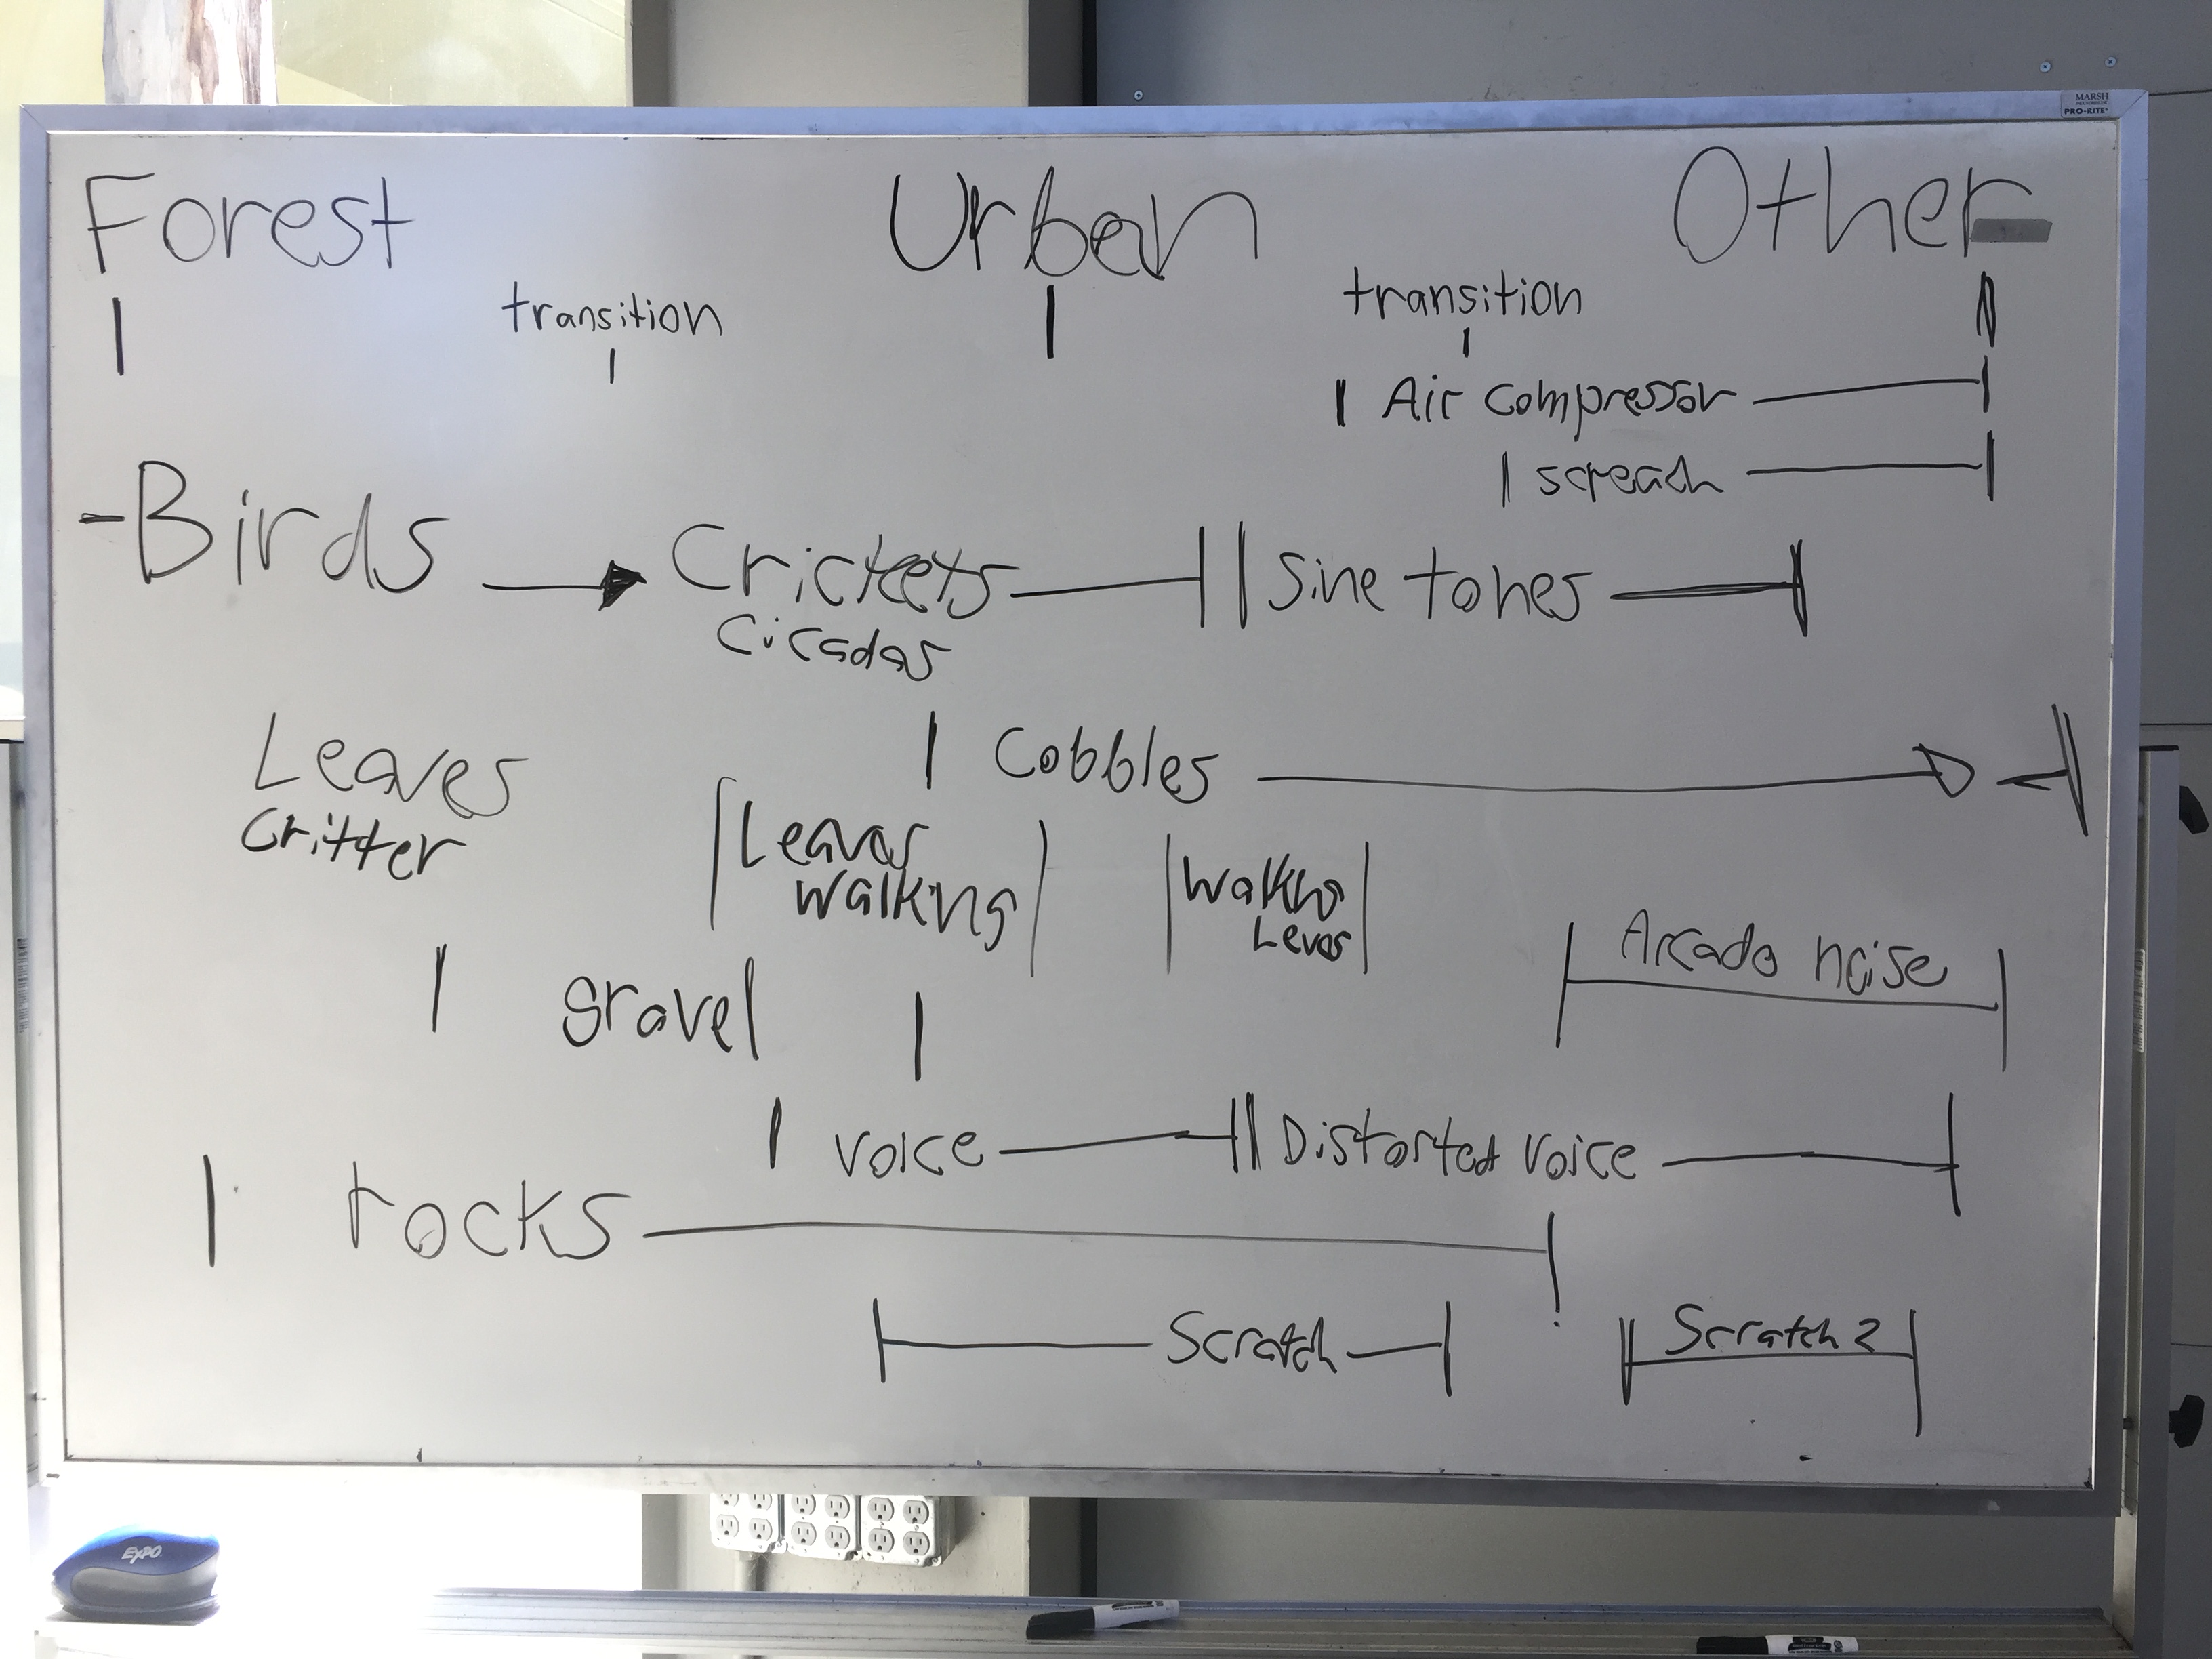 MARSH
PRO-RITE
Forest Urban Other
transition transition
Air compressor
screach
-Birds Crickets Sine tones
Cicadas
Leaves Cobbles
Critter
Leaves
walking
Walking
Leves
Arcade noise
gravel
voice Distorted voice
rocks
Scratch Scratch 2
EXPO